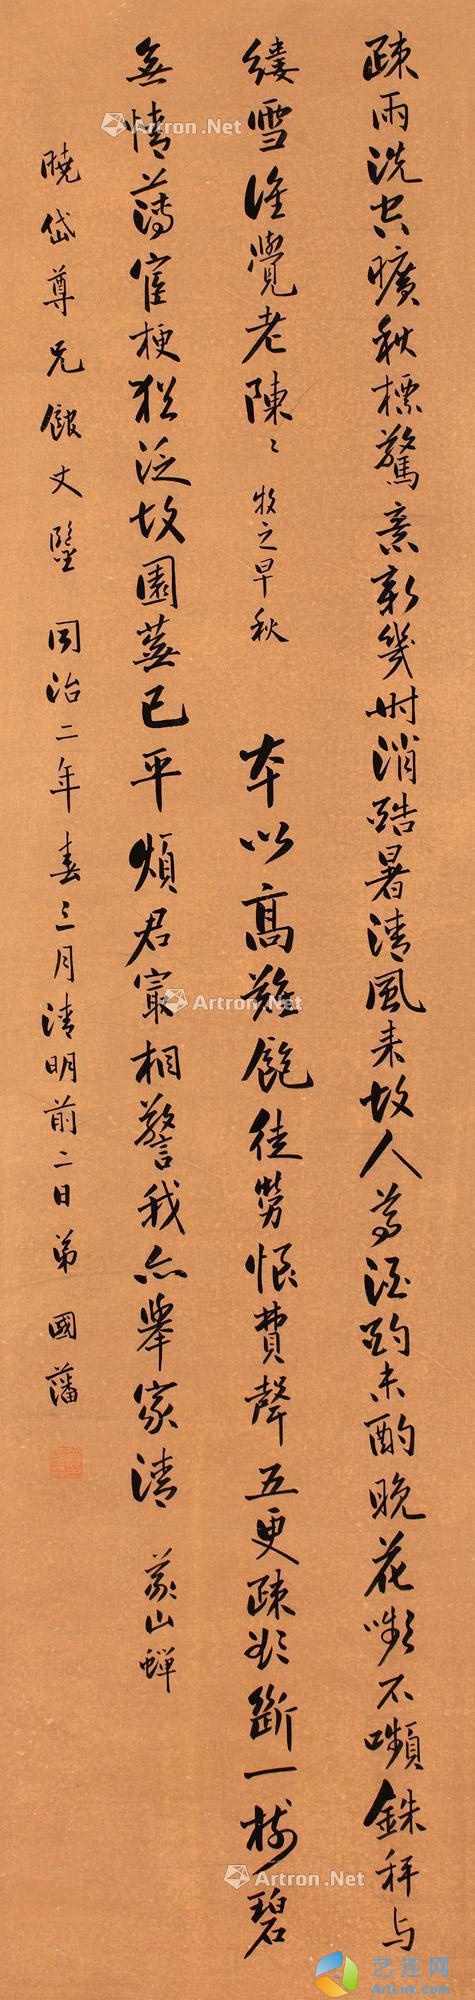 疎雨洗空曠秋標驚意新幾时消酷暑清風来故人尊酒酌未酌晚花嚬不嚬銖秤与
縷雪誰覺老陳〻 牧之早秋 本以高難飽徒勞恨費聲五更疎欲斷一樹碧
無情薄宦梗猶泛故園蕪已平煩君寂相警我亦舉家清 義山蟬
曉岱尊兄館丈鑒 同治二年春三月清明前二日弟國藩
Artron.Net
Artron.Net
Artron.Net
Artron.Net
Artron.Net
艺连网